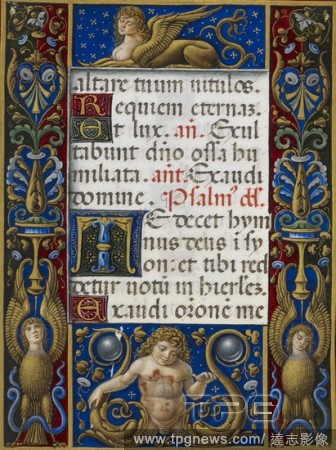 altare tuum vitulos.
Requiem eternaz.
Et lux. añ. Exul
tabunt dño ossa hu
miliata. ant. Exaudi
domine. Psalm⁹
TE decet hym
nus deus ĩ sy
on: et tibi red
detur votũ in hierlez.
Exaudi orõnē me
TPG
www.tpgnews.com/ 達志影像